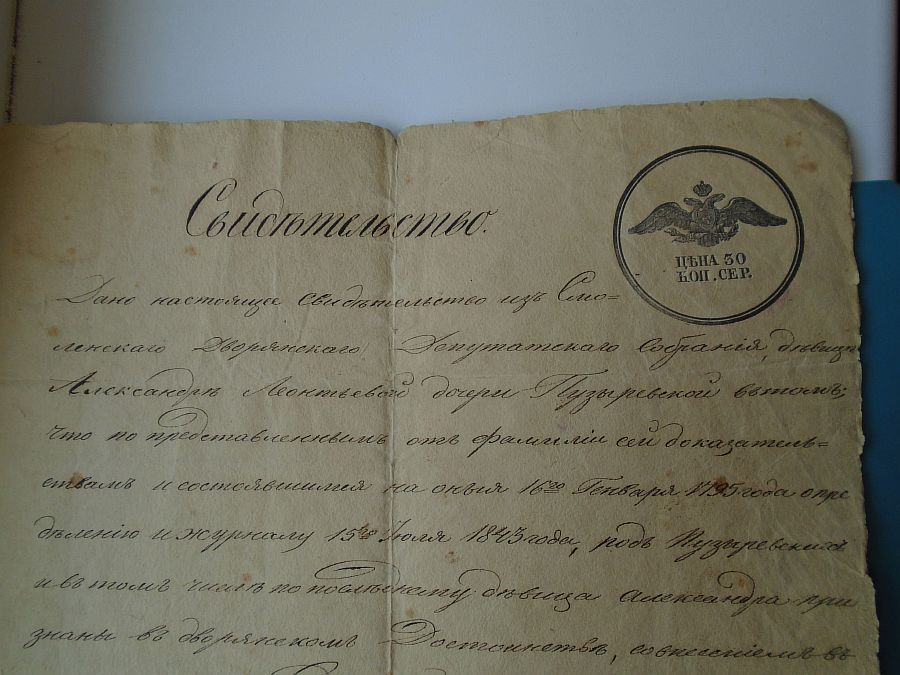 Свидѣтельство.
ЦѢНА 30
КОП. СЕР.
Дано настоящее свидѣтельство изъ Смо=
ленскаго Дворянскаго Депутатскаго Собранія, дѣвицѣ
Александрѣ Леонтьевой дочери Пузыревской въ томъ;
что по представленнымъ отъ фамиліи сей доказатель=
ствамъ и состоявшимся на оныя 16го Генваря 1795 года опре
дѣленію и журналу 15го Іюля 1843 года, родъ Пузыревскихъ
и въ томъ числѣ по послѣднему дѣвица Александра при
знаны въ дворянскомъ Достоинствѣ, со внесеніемъ въ